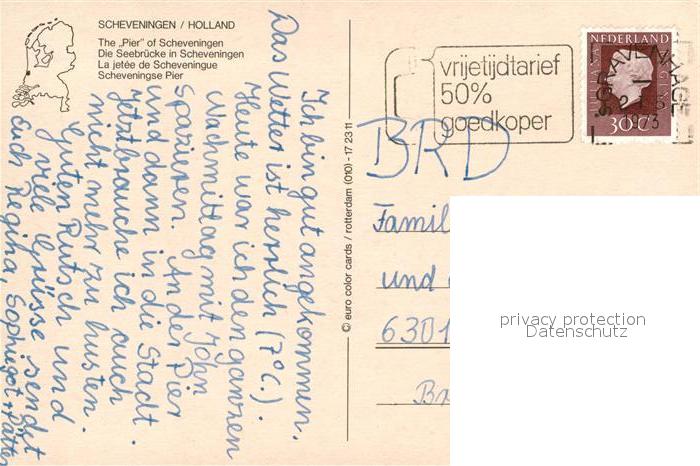 SCHEVENINGEN / HOLLAND
The „Pier" of Scheveningen
Die Seebrücke in Scheveningen
La jetée de Scheveningue
Scheveningse Pier
Ich bin gut angekommen.
Das Wetter ist herrlich (7°C.).
Heute war ich den ganzen
Nachmittag mit John
spazieren. An der Pier
und dann in die Stadt.
Jetzt brauche ich auch
nicht mehr zu husten.
Guten Rutsch und
viele Grüsse sendet
euch Regina,
© euro color cards / rotterdam (010) - 17 23 11
vrijetijdtarief
50%
goedkoper
NEDERLAND
JULIANA REGINA
30 CT
'S-GRAVENHAGE
1973
BRD
Famil
und
6301
privacy protection
Datenschutz